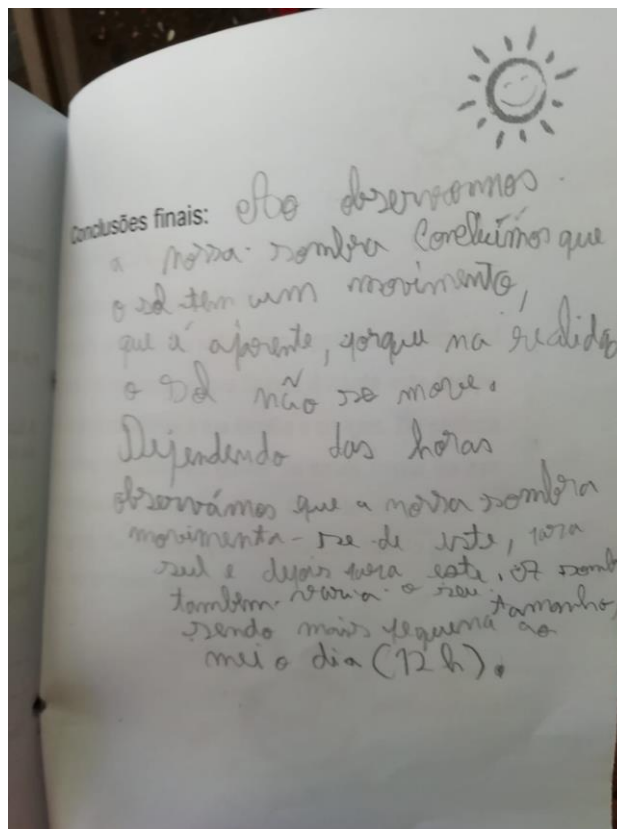 Conclusões finais: Ao observarmos
a nossa sombra Concluímos que
o sol tem um movimento,
que é aparente, porque na realida
o sol não se move.
Dependendo das horas
observámos que a nossa sombra
movimenta-se de este, para
sul e depois para este. A somb
também varia o seu tamanho,
sendo mais pequena ao
meio dia (12 h).